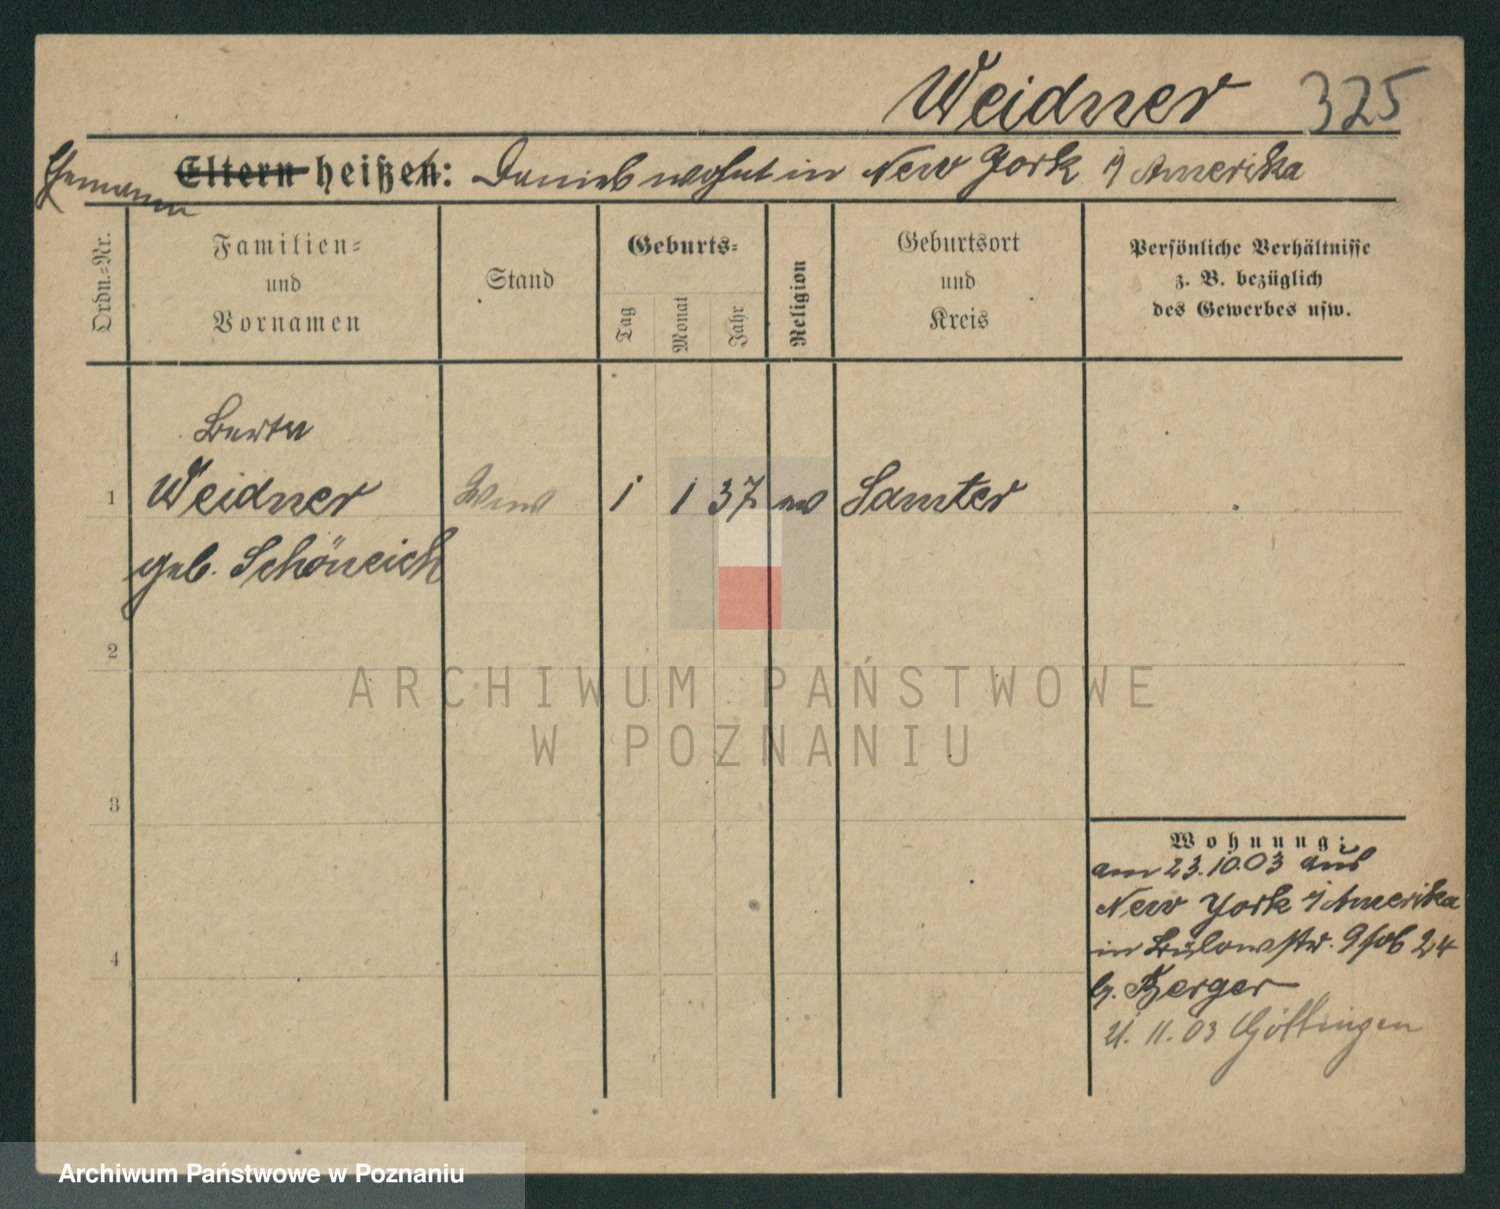 Weidner 325
Ehemann Eltern heißen: Daniel wohnt in New York i/ Amerika
Ordn.=Nr.
Familien=
und
Vornamen
Stand
Geburts=
Tag
Monat
Jahr
Religion
Geburtsort
und
Kreis
Persönliche Verhältnisse
z. B. bezüglich
des Gewerbes usw.
Berta
1 Weidner 1 1 37 Samter
geb. Schöneich
2
3
4
Wohnung:
am 23.10.03 aus
New York i/Amerika
in Bülowstr. 9 24
b. Berger
21. 11. 03 Göttingen
ARCHIWUM PAŃSTWOWE
W POZNANIU
Archiwum Państwowe w Poznaniu